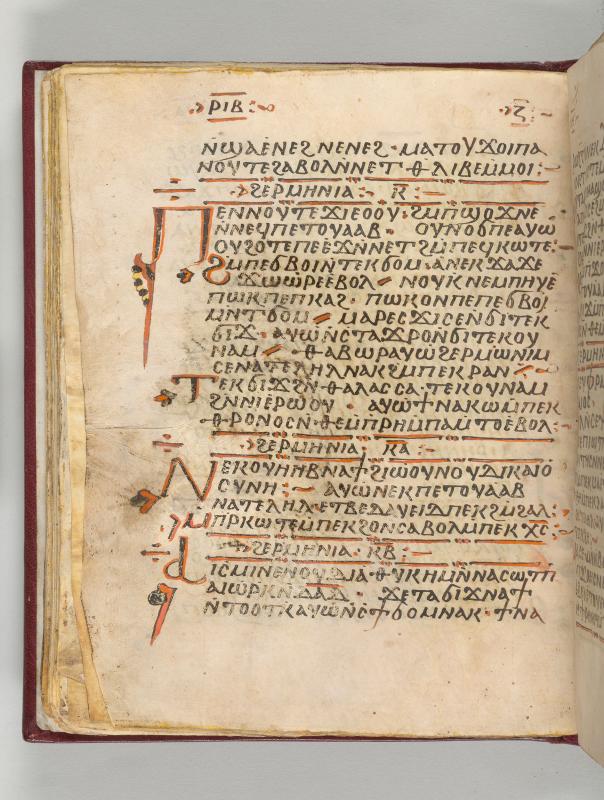 ⲣⲓⲃ ⲍ
ⲛϣⲁⲉⲛⲉϩ ⲛⲉⲛⲉϩ · ⲙⲁⲧⲟⲩϫⲟⲓ ⲡⲁ
ⲛⲟⲩⲧⲉ ϩⲁⲃⲟⲗ ⲛⲛⲉⲧⲑⲗⲓⲃⲉ ⲙⲙⲟⲓ :
ϩⲉⲣⲙⲏⲛⲓⲁ · ⲕ̅ :
ⲡⲉⲛⲛⲟⲩⲧⲉ ϫⲓⲉⲟⲟⲩ : ϩⲙ ⲡϣⲟϫⲛⲉ
ⲛⲛⲉϥⲡⲉⲧⲟⲩⲁⲁⲃ ⲟⲩⲛⲟϭ ⲡⲉ ⲁⲩⲱ
ⲟⲩϩⲟⲧⲉ ⲡⲉ ⲉϫⲛ ⲛⲉⲧϩⲙ ⲡⲉϥⲕⲱⲧⲉ :
ϩⲙ ⲡⲉϭⲃⲟⲓ ⲛⲧⲉⲕϭⲟⲙ · ⲁⲛⲉⲕϫⲁϫⲉ
ϫⲱⲱⲣⲉ ⲉⲃⲟⲗ ⲛⲟⲩⲕ ⲛⲉ ⲙⲡⲏⲩⲉ
ⲡⲱⲕ ⲡⲉ ⲡⲕⲁϩ · ⲡⲱⲕ ⲟⲛ ⲡⲉ ⲡⲉϭⲃⲟⲓ
ⲙⲛ ⲧϭⲟⲙ ⲙⲁⲣⲉⲥϫⲓⲥⲉ ⲛϭⲓ ⲧⲉⲕ
ϭⲓϫ · ⲁⲩⲱ ⲛⲥⲧⲁϫⲣⲟ ⲛϭⲓ ⲧⲉⲕⲟⲩ
ⲛⲁⲙ ⲑⲁⲃⲱⲣ ⲁⲩⲱ ϩⲉⲣⲙⲱⲛⲓⲙ
ⲥⲉⲛⲁⲧⲉⲗⲏⲗ ⲛⲁⲕ ϩⲙ ⲡⲉⲕⲣⲁⲛ
ⲧⲉⲕϭⲓϫ ϩⲛ ⲑⲁⲗⲁⲥⲥⲁ · ⲧⲉⲕⲟⲩⲛⲁⲙ
ϩⲛ ⲛⲓⲉⲣⲱⲟⲩ · ⲁⲩⲱ ϯⲛⲁⲕⲱ ⲙⲡⲉⲕ
ⲑⲣⲟⲛⲟⲥ ⲛⲑⲉ ⲙⲡⲣⲏ ⲙⲡⲁⲙⲧⲟ ⲉⲃⲟⲗ :
ϩⲉⲣⲙⲏⲛⲓⲁ ⲕ̅ⲁ̅ :
ⲛⲉⲕⲟⲩⲏⲏⲃ ⲛⲁϯ ϩⲓⲱⲟⲩ ⲛⲟⲩⲇⲓⲕⲁⲓⲟ
ⲥⲩⲛⲏ : ⲁⲩⲱ ⲛⲉⲕⲡⲉⲧⲟⲩⲁⲁⲃ
ⲛⲁⲧⲉⲗⲏⲗ ⲉⲧⲃⲉ ⲇⲁⲩⲉⲓⲇ ⲡⲉⲕϩⲙϩⲁⲗ :
ⲙⲡⲣⲕⲱⲧⲉ ⲙⲡⲉⲕϩⲟ ⲛⲥⲁⲃⲟⲗ ⲙⲡⲉⲕⲭ̅ⲥ̅ :
ϩⲉⲣⲙⲏⲛⲓⲁ · ⲕ̅ⲃ̅ :
ⲁⲓⲥⲙⲓⲛⲉ ⲛⲟⲩⲇⲓⲁⲑⲩⲕⲏ ⲙⲛ ⲛⲁⲥⲱⲧⲡ
ⲁⲓⲱⲣⲕ ⲛⲇ̅ⲁ̅ⲇ̅ ϫⲉ ⲧⲁϭⲓϫ ⲛⲁϯ
ⲛⲧⲟⲟⲧⲕ ⲁⲩⲱ ⲛⲥϯϭⲟⲙ ⲛⲁⲕ · ϯⲛⲁ